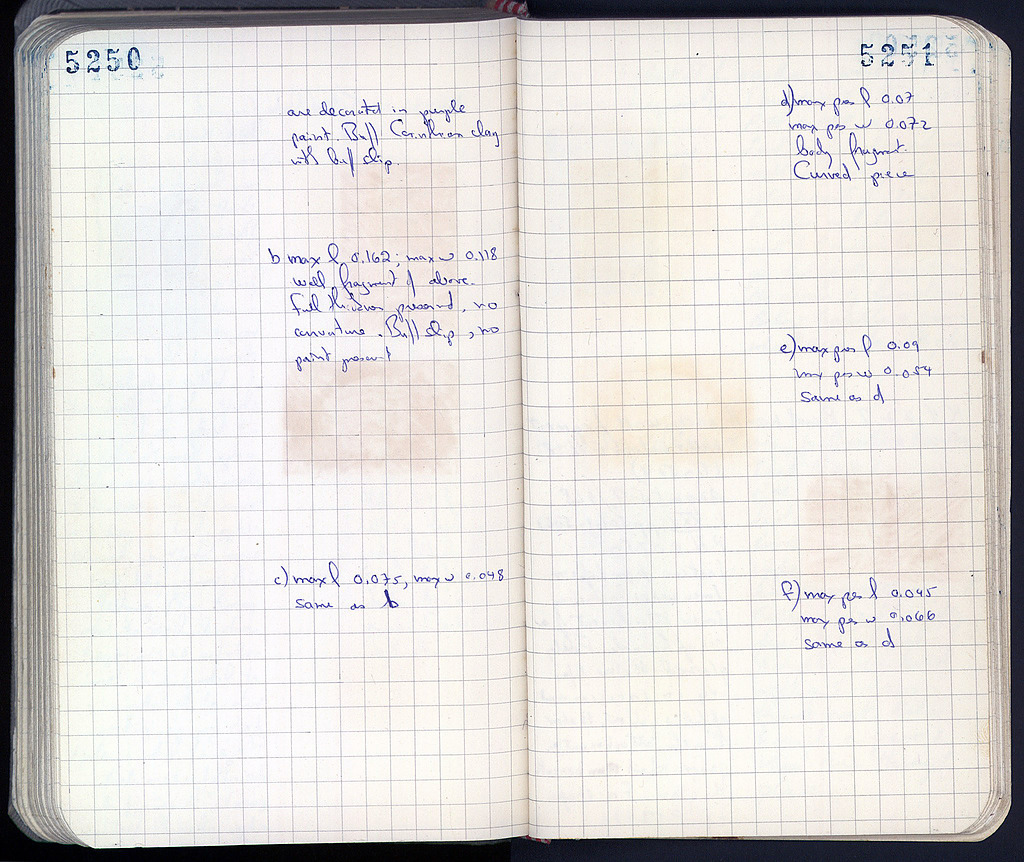 5250
are decorated in purple
paint. Buff Corinthian clay
with buff slip.
b max l 0.162; max w 0.118
wall fragment of above.
full thickness preserved, no
curvature. Buff slip, no
paint present
c) max l 0.075, max w 0.048
same as b
5251
d) max pres l 0.07
max pres w 0.072
body fragment.
Curved piece
e) max pres l 0.09
max pres w 0.054
Same as d
f) max pres l 0.045
max pres w 0.066
same as d